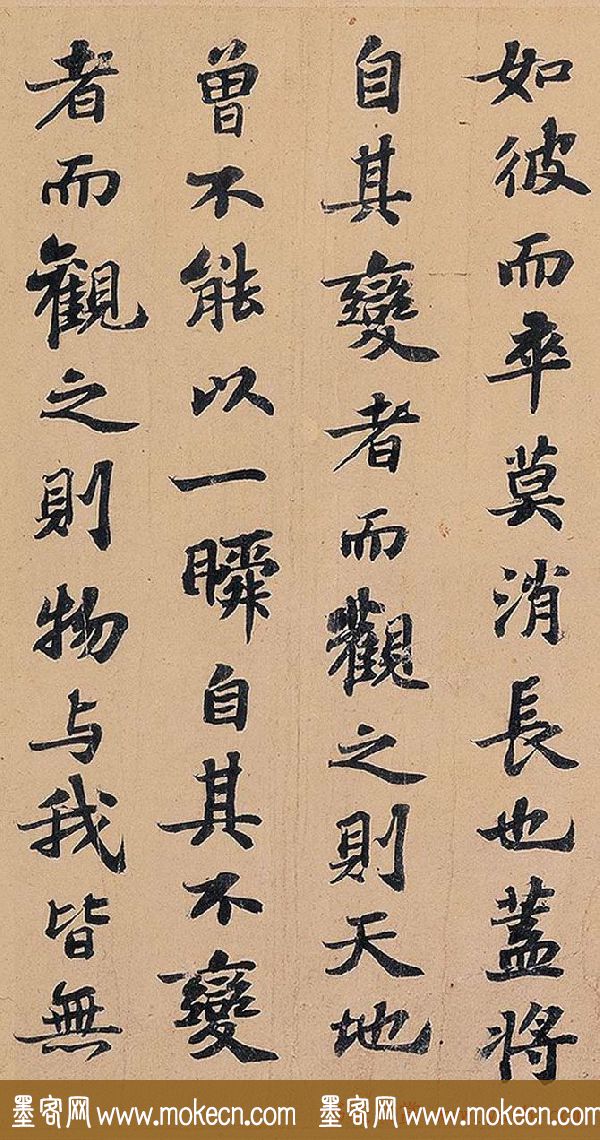 如彼而卒莫消長也蓋將
自其變者而觀之則天地
曾不能以一瞬自其不變
者而觀之則物与我皆無
墨客网 www.mokecn.com 墨客网 www.mokecn.com